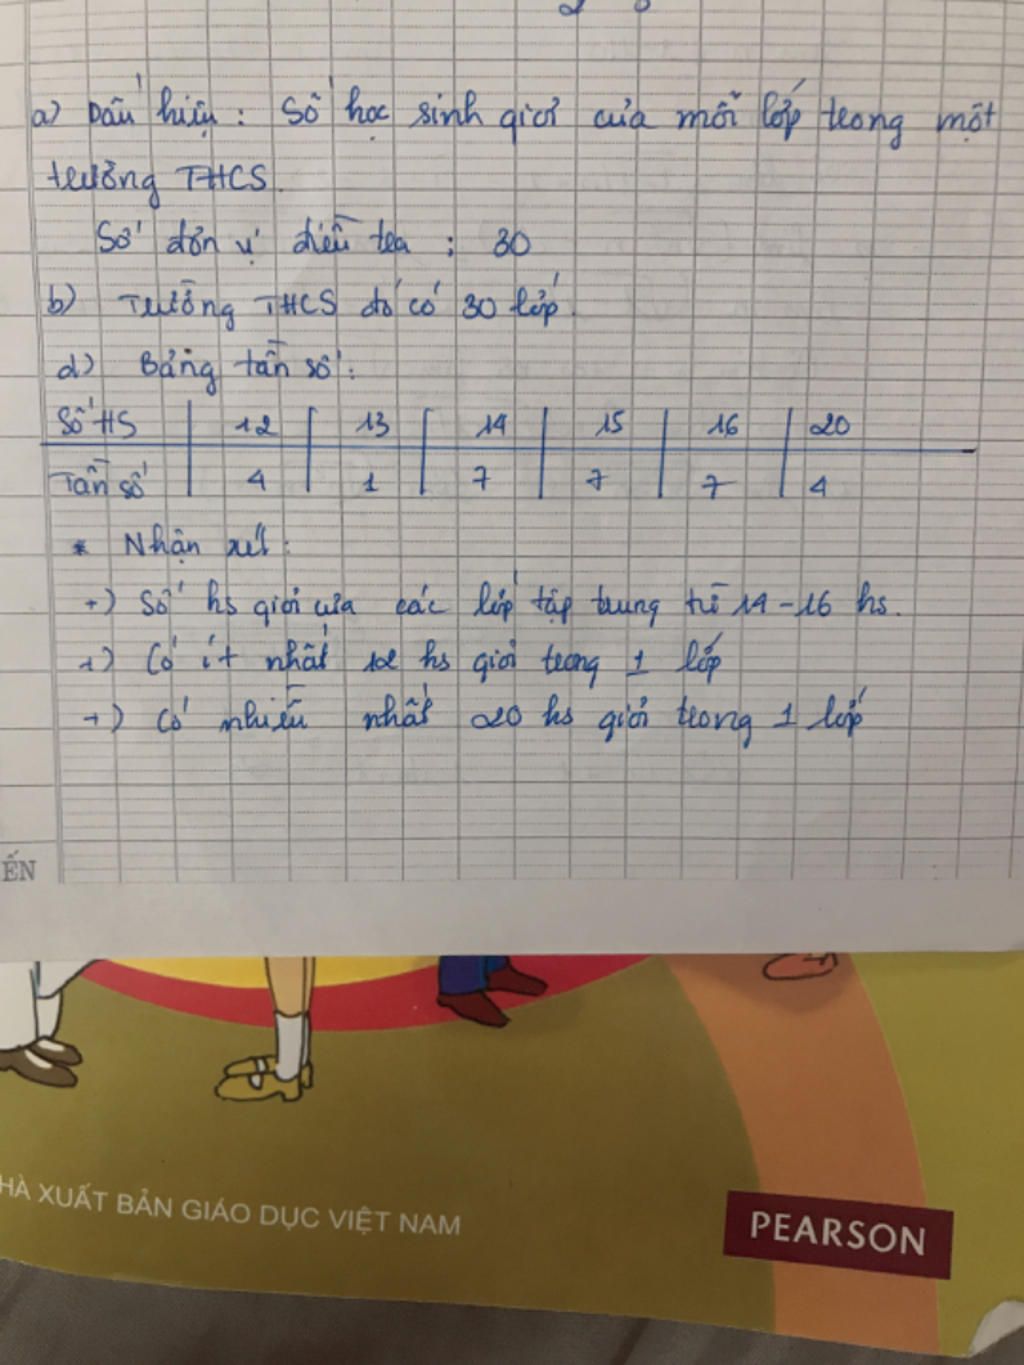 a) Dấu hiệu : Số học sinh giỏi của mỗi lớp trong một
trường THCS.
Số đơn vị điều tra : 30
b) Trường THCS đó có 30 lớp.
d) Bảng tần số :
Số HS 12 13 14 15 16 20
Tần số 4 1 7 7 7 4
* Nhận xét :
+) Số hs giỏi của các lớp tập trung từ 14 - 16 hs.
+) Có ít nhất 12 hs giỏi trong 1 lớp
+) Có nhiều nhất 20 hs giỏi trong 1 lớp
ẾN
HÀ XUẤT BẢN GIÁO DỤC VIỆT NAM
PEARSON